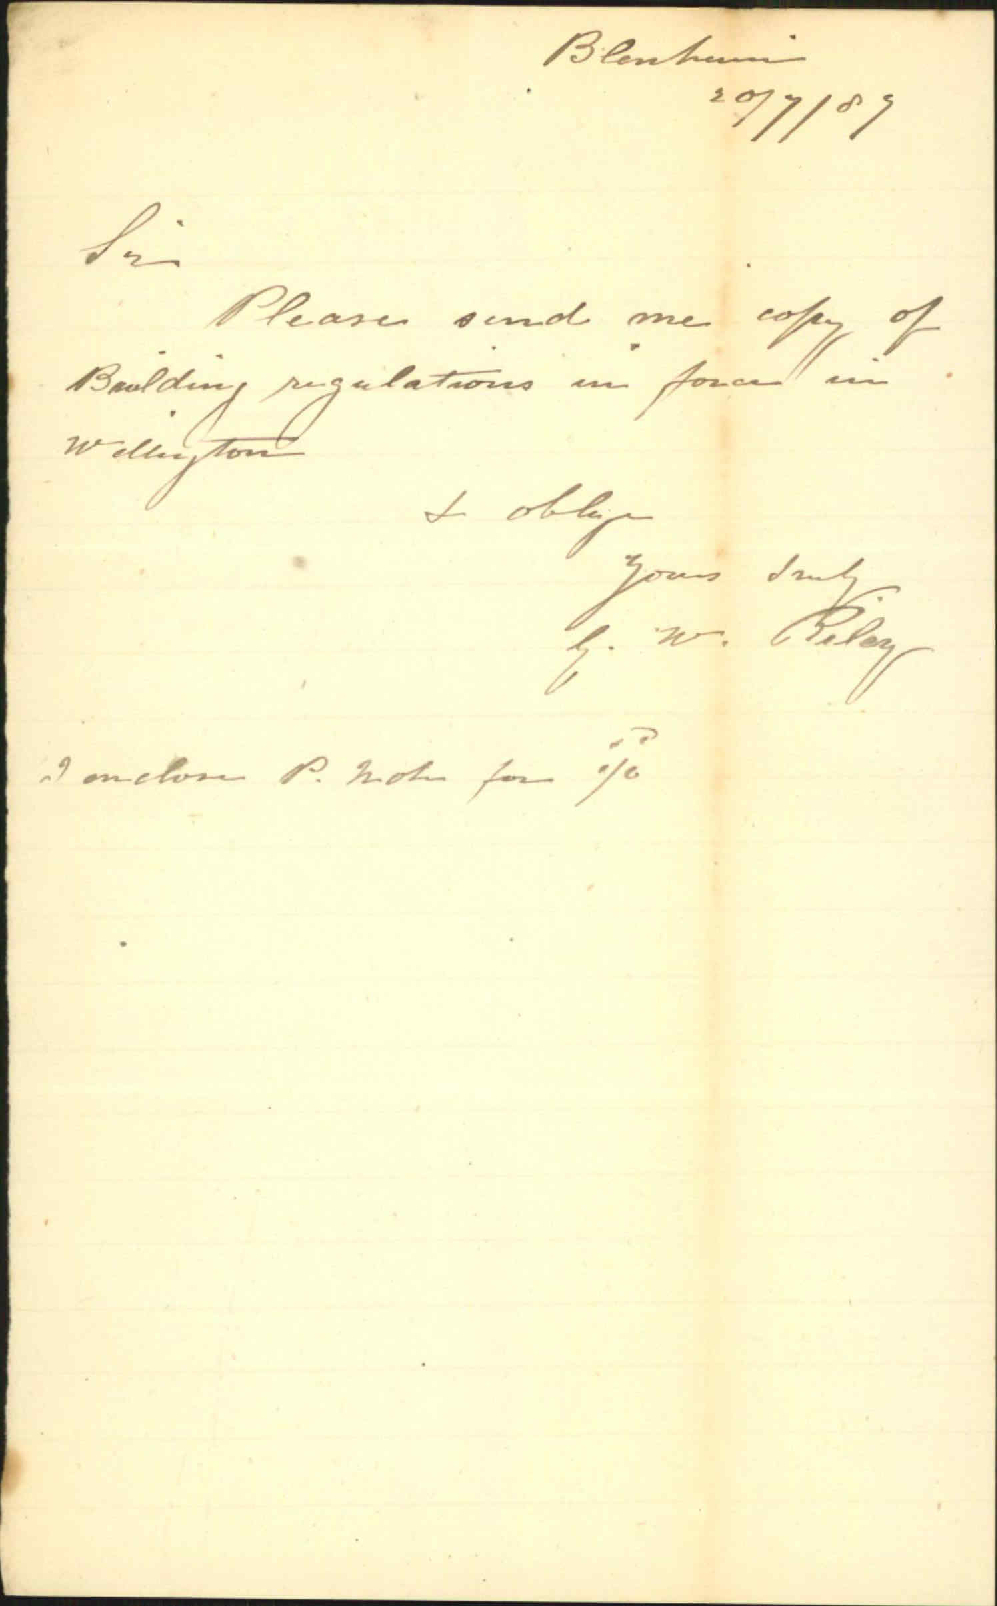 Blenheim
20/7/89
Sir
Please send me copy of
Building regulations in force in
Wellington
& oblige
Yours truly
G. W. Riley
I enclose P. Note for